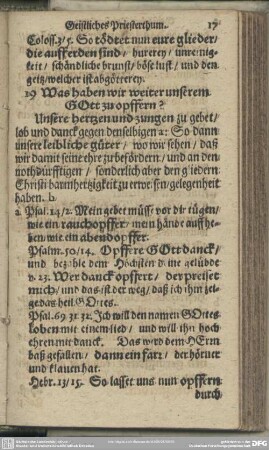 Geistliches Priesterthum. 17
Coloss. 3/5. So tödtet nun eure glieder/
die auff erden sind/ hurerey/ unreinig-
keit/ schändliche brunst/ böse lust/ und den
geitz/welcher ist abgötterey.
19 Was haben wir weiter unserem
GOtt zu opffern?
Unsere hertzen und zungen zu gebet/
lob und danck gegen denselbigen a: So dann
unsere leibliche güter/ wo wir sehen/ daß
wir damit seine ehre zu befördern/ und an den
nothdürfftigen/ sonderlich aber den gliedern
Christi barmhertzigkeit zu erweisen/gelegenheit
haben. b
a Psal. 14/2. Mein gebet müsse vor dir tügen/
wie ein rauchopffer/ mein hände auffhe-
ben/ wie ein abendopffer.
Psalm. 50/14. Opffere GOtt danck/
und bezahle dem Höchsten deine gelübde
v. 23. Wer danck opffert/ der preiset
mich/ und das ist der weg/ daß ich ihm zei-
ge das heil GOttes.
Psal. 69 31 32. Ich will den namen GOttes
loben mit einem lied/ und will ihn hoch-
ehren mit danck. Das wird dem HErrn
baß gefallen/ dann ein farr/ der hörner
und klauen hat.
Hebr. 13/15. So lasset uns nun opffern
durch